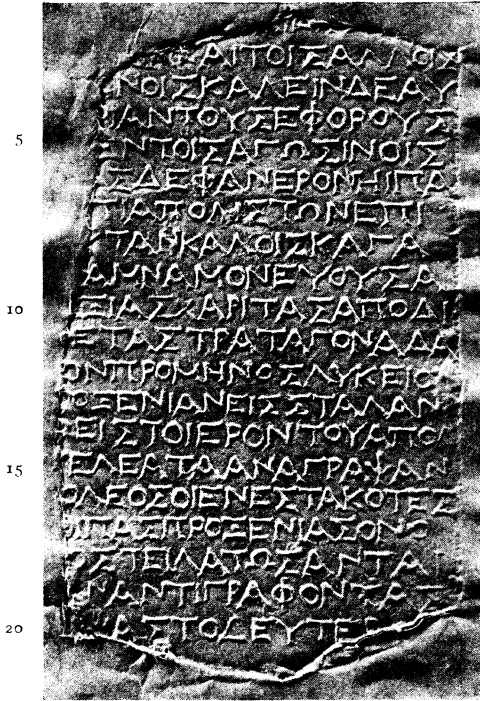 ΚΑΙΤΟΙΣΑΛΛΟΙΣ
ΝΟΙΣΚΑΛΕΙΝΔΕΑΥ
ΑΝΤΟΥΣΕΦΟΡΟΥΣ
5 ΕΝΤΟΙΣΑΓΩΣΙΝΟΙΣ
ΣΔΕΦΑΝΕΡΟΝΗΙΠΑ
ΤΙΑΠΟΛΙΣΤΩΝΕΠΙ
ΠΑΡΚΑΛΟΙΣΚΑΓΑ
ΑΜΝΑΜΟΝΕΥΟΥΣΑ
10 ΞΙΑΣΧΑΡΙΤΑΣΑΠΟΔΙ
ΕΤΑΣΤΡΑΤΑΓΟΝΔΑΔΑ
ΟΝΠΡΟΜΗΝΟΣΛΥΚΕΙΟΥ
ΟΞΕΝΙΑΝΕΙΣΣΤΑΛΑΝ
ΕΙΣΤΟΙΕΡΟΝΤΟΥΑΠΟΛ
15 ΕΛΕΑΤΑΑΝΑΓΡΑΨΑΝ
ΟΛΕΟΣΟΙΕΝΕΣΤΑΚΟΤΕΣ
ΙΠΑΣΠΡΟΞΕΝΙΑΣΟΝ
ΣΤΕΙΛΑΤΩΣΑΝΤΑ
ΑΝΤΙΓΡΑΦΟΝΠΣΑ
20 ΑΣΤΟΔΕΥΤΕΡ